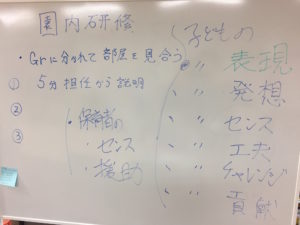 園内研修
・Grに分かれて部屋を見合う
① 5分担任から説明
②
③
・保育者の
・センス
・援助
子どもの
〃 表現
〃 発想
〃 センス
〃 工夫
〃 チャレンジ
〃 貢献